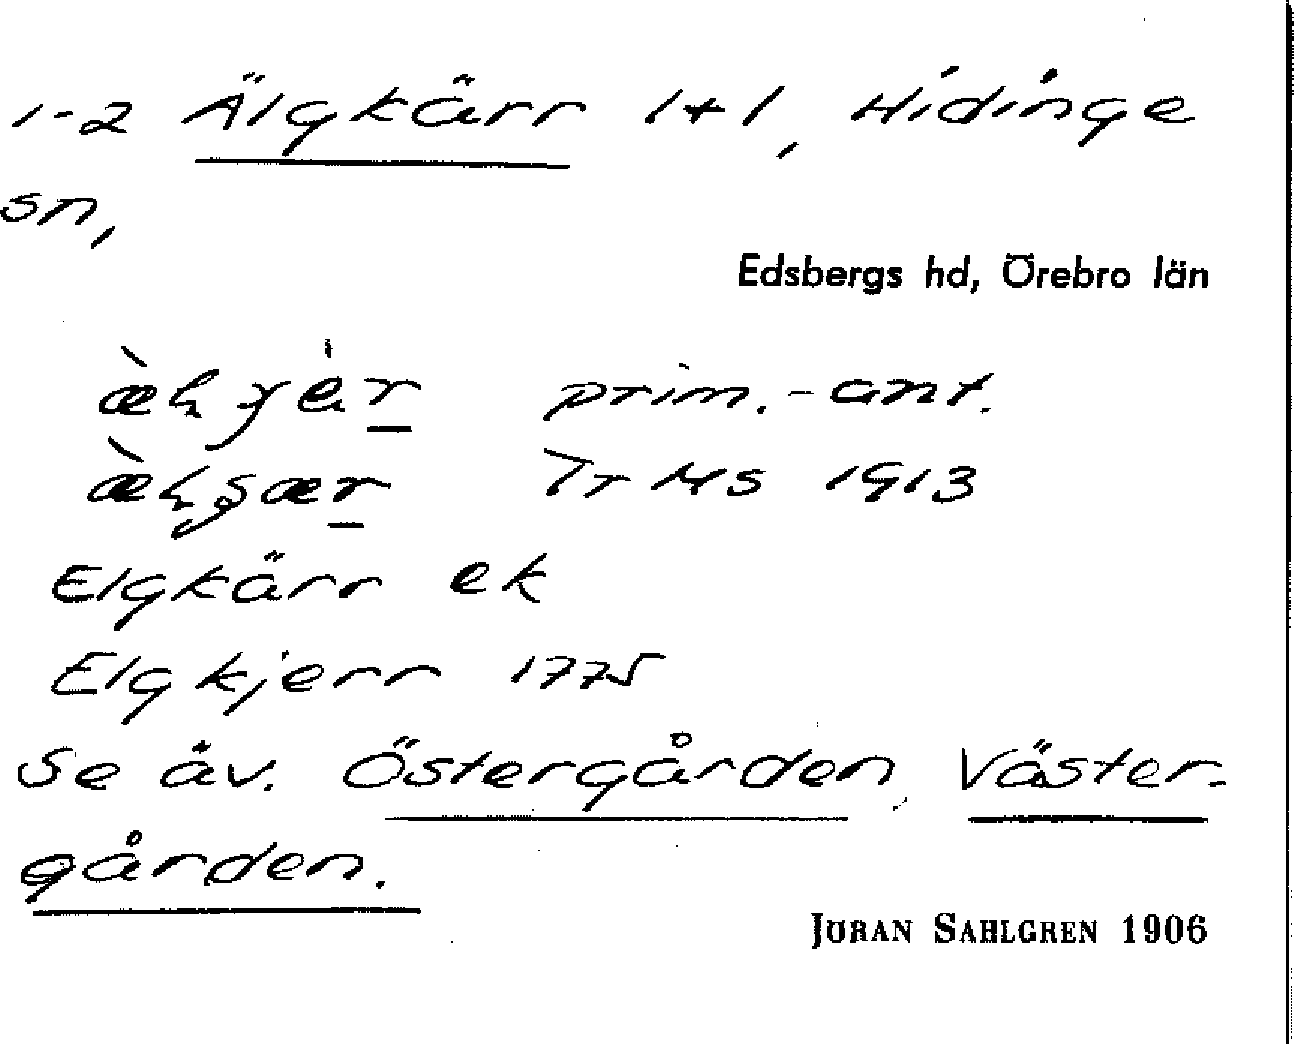 1-2 Älgkärr 1+1, Hidinge
sn,
Edsbergs hd, Örebro län
prim.-ant.
Tr MS 1913
Elgkärr ek
Elgkjerr 1775
Se äv. Östergården, Väster-
gården.
JÖRAN SAHLGREN 1906